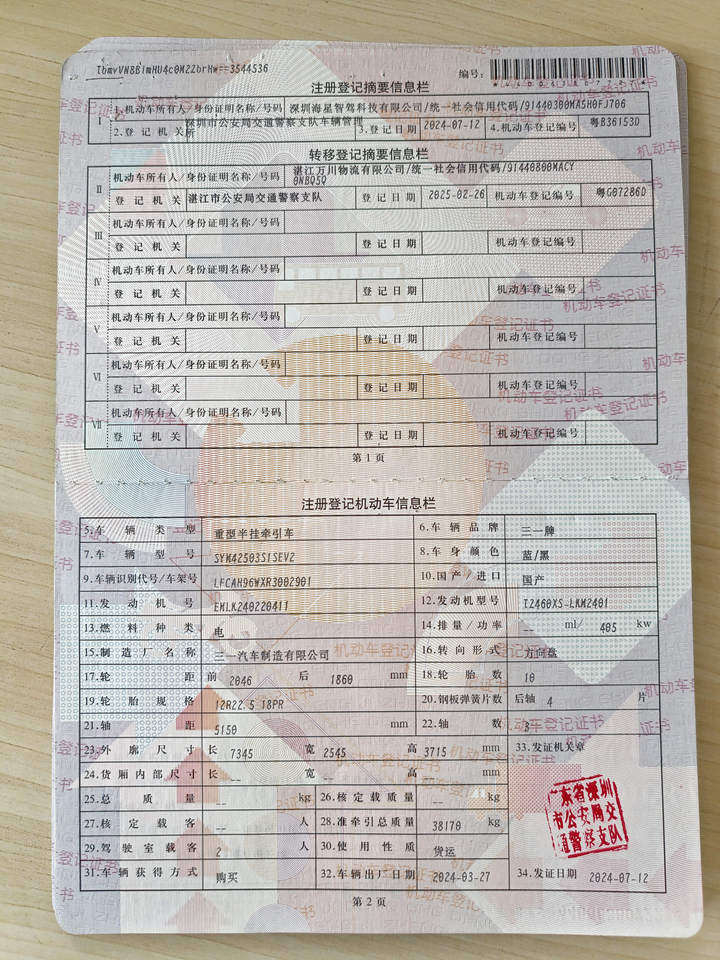 编号:
注册登记摘要信息栏
I 1.机动车所有人/身份证明名称/号码 深圳海星智驾科技有限公司/统一社会信用代码/91440300MA5H0FJ706
2.登记机关 深圳市公安局交通警察支队车辆管理所 3.登记日期 2024-07-12 4.机动车登记编号 粤B36153D
转移登记摘要信息栏
II 机动车所有人/身份证明名称/号码 湛江万川物流有限公司/统一社会信用代码/91440800MACY0NBQ5Q
登记机关 湛江市公安局交通警察支队 登记日期 2025-02-26 机动车登记编号 粤G07286D
III 机动车所有人/身份证明名称/号码
登记机关 登记日期 机动车登记编号
IV 机动车所有人/身份证明名称/号码
登记机关 登记日期 机动车登记编号
V 机动车所有人/身份证明名称/号码
登记机关 登记日期 机动车登记编号
VI 机动车所有人/身份证明名称/号码
登记机关 登记日期 机动车登记编号
VII 机动车所有人/身份证明名称/号码
登记机关 登记日期 机动车登记编号
第1页
注册登记机动车信息栏
5.车辆类型 重型半挂牵引车 6.车辆品牌 三一牌
7.车辆型号 SYM42503S1SEV2 8.车身颜色 蓝/黑
9.车辆识别代号/车架号 LFCAH96WXR3002901 10.国产/进口 国产
11.发动机号 EMLK240220411 12.发动机型号 TZ460XS-LKM2401
13.燃料种类 电 14.排量/功率 -- ml/ 405 kw
15.制造厂名称 三一汽车制造有限公司 16.转向形式 方向盘
17.轮距 前 2046 后 1860 mm 18.轮胎数 10
19.轮胎规格 12R22.5 18PR 20.钢板弹簧片数 后轴 4 片
21.轴距 5150 mm 22.轴数 3
23.外廓尺寸 长 7345 宽 2545 高 3715 mm 33.发证机关章
24.货厢内部尺寸 长 -- 宽 -- 高 -- mm
25.总质量 -- kg 26.核定载质量 -- kg
27.核定载客 -- 人 28.准牵引总质量 38170 kg
29.驾驶室载客 2 人 30.使用性质 货运
31.车辆获得方式 购买 32.车辆出厂日期 2024-03-27 34.发证日期 2024-07-12
广东省深圳
市公安局交
通警察支队
第2页